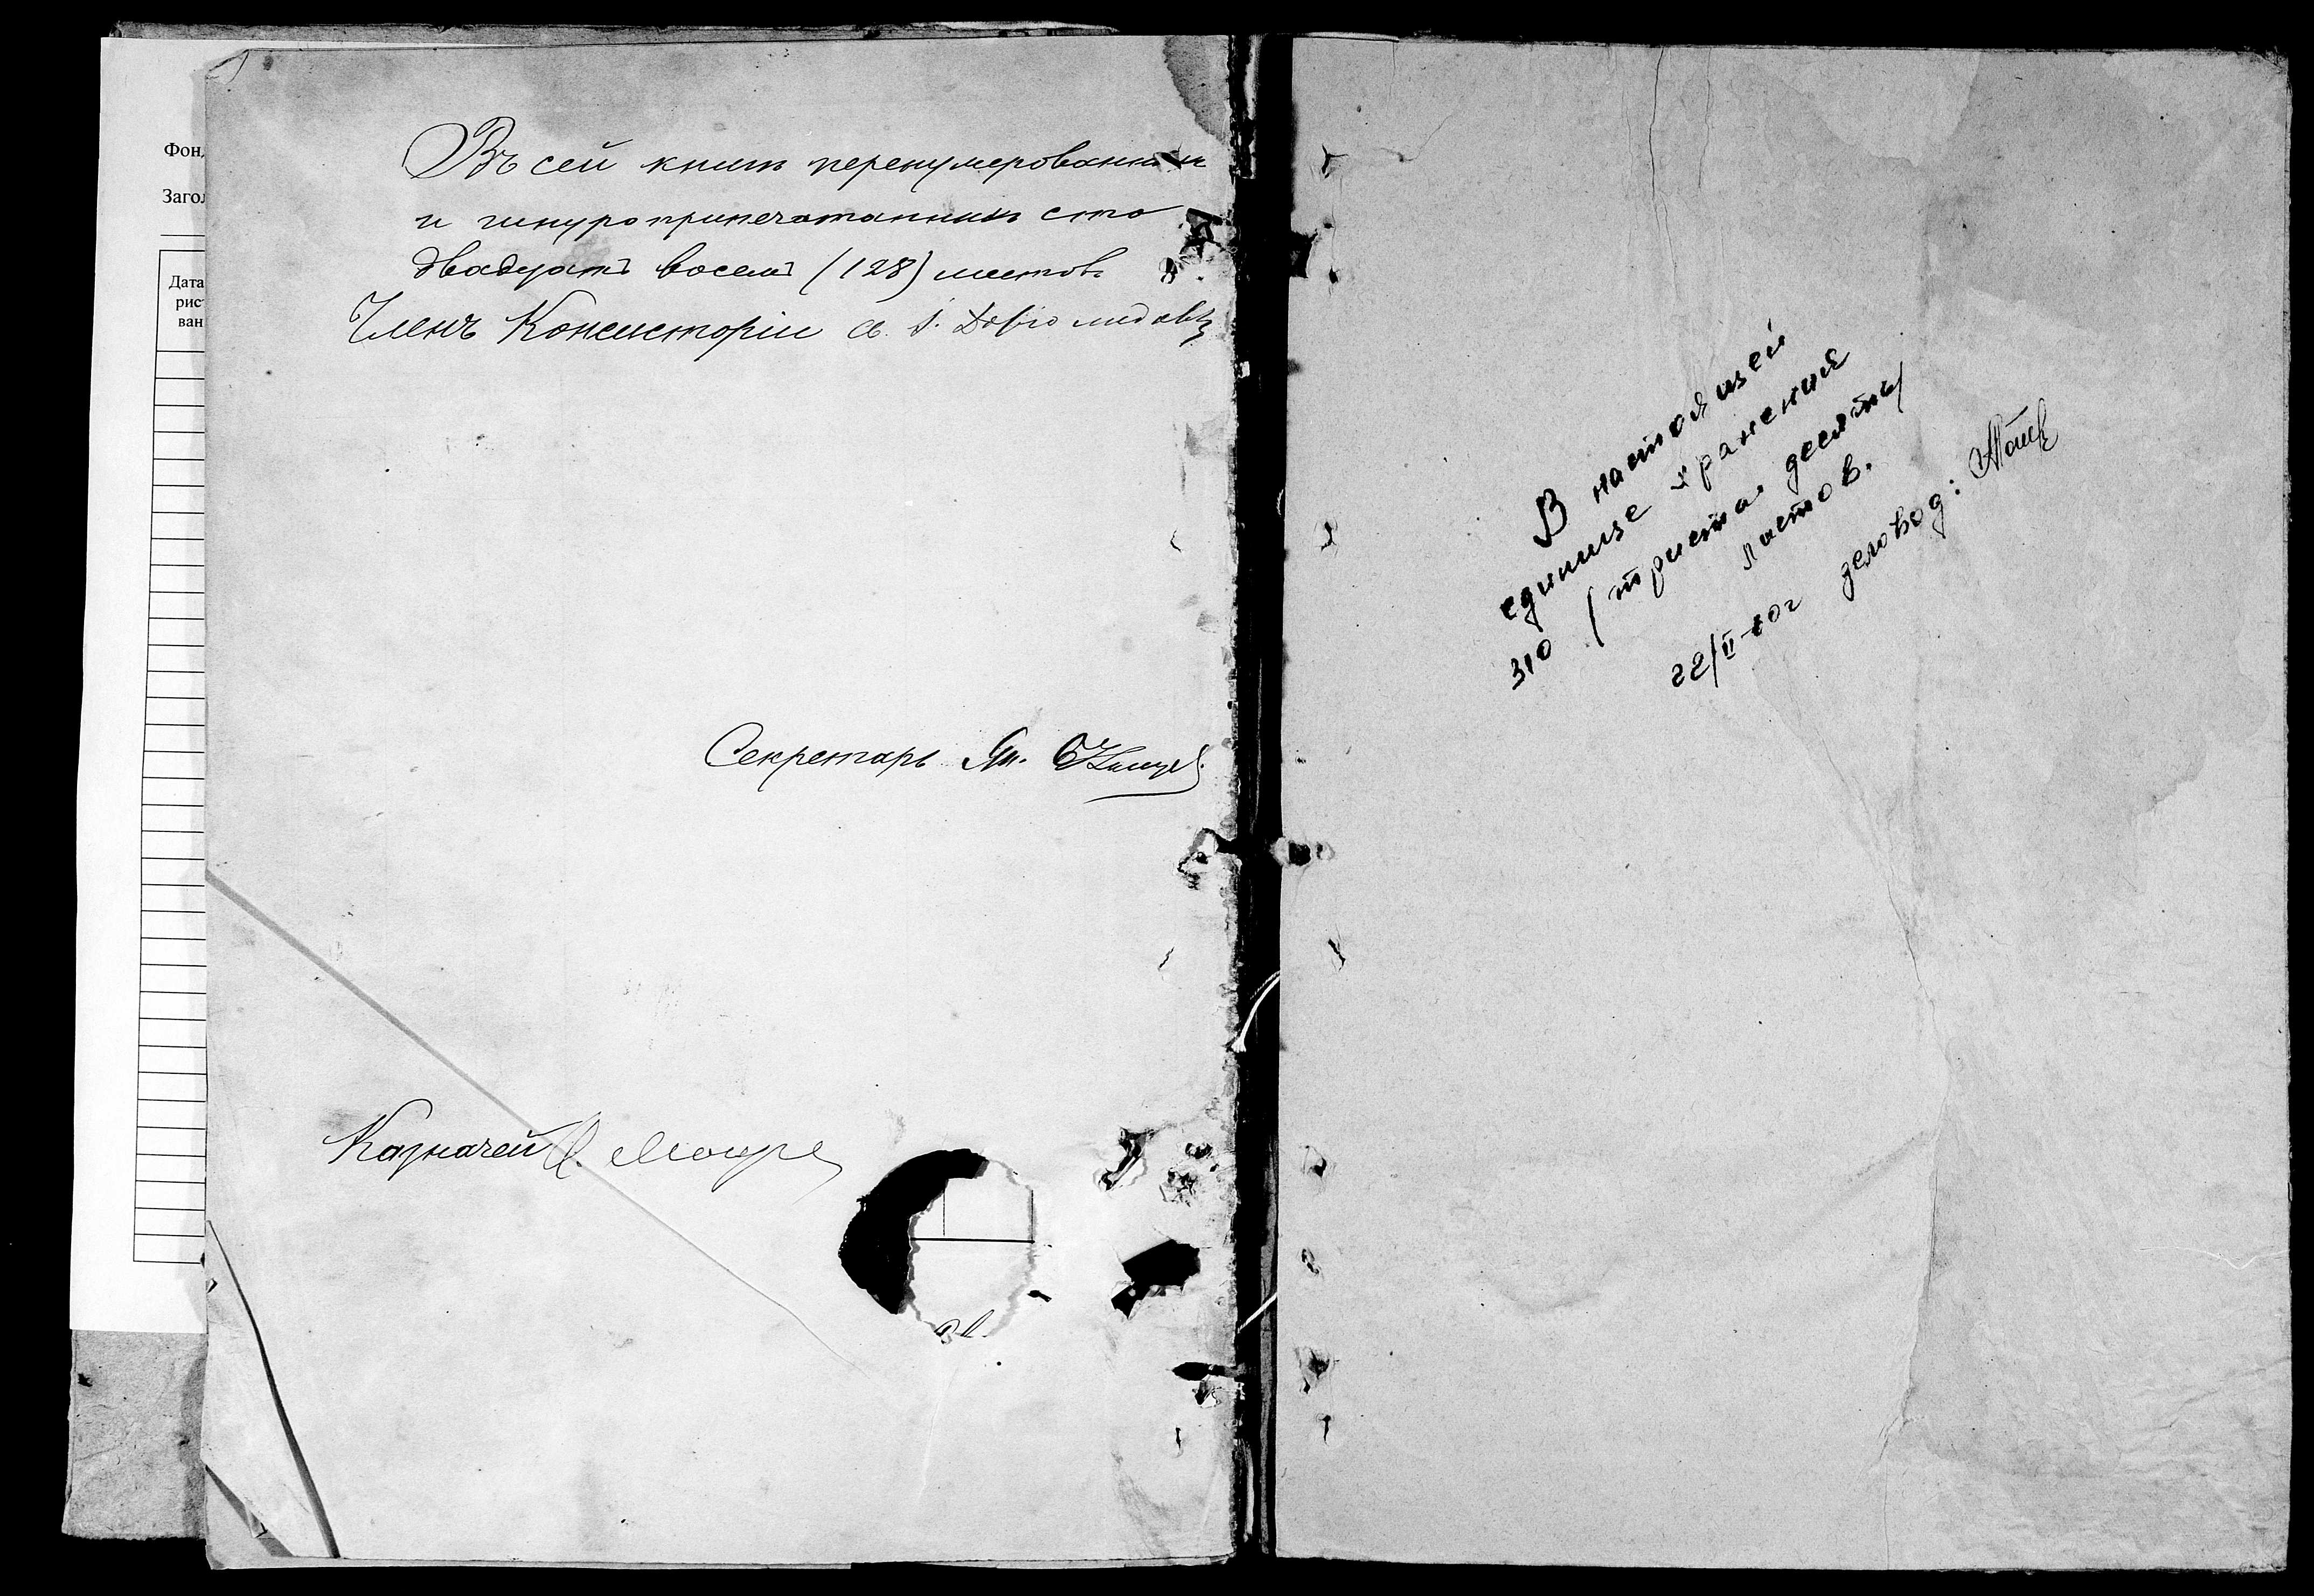 Фон
Заго
Дата
рис
ван
Въ сей книгѣ перенумерованныхъ
и шнуроприпечатанныхъ сто
двадцать восемь (128) листовъ.
Членъ Консисторіи св. І.
Секретарь
Казначей
В настоящей
единице хранения
310 (триста десять)
листов.
22/II-60г деловод: